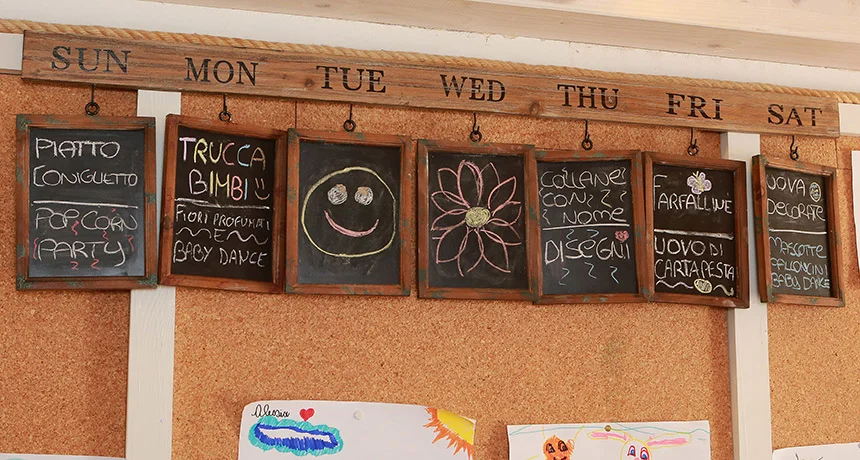 SUN MON TUE WED THU FRI SAT
PIATTO
CONIGLIETTO
POPCORN
PARTY
TRUCCA
BIMBI
FIORI PROFUMATI
E
BABY DANCE
COLLANE
CON
NOME
DISEGNI
FARFALLINE
UOVO DI
CARTAPESTA
UOVA
DECORATE
MASCOTTE
PALLONCINI
BABY DANCE
Alessia